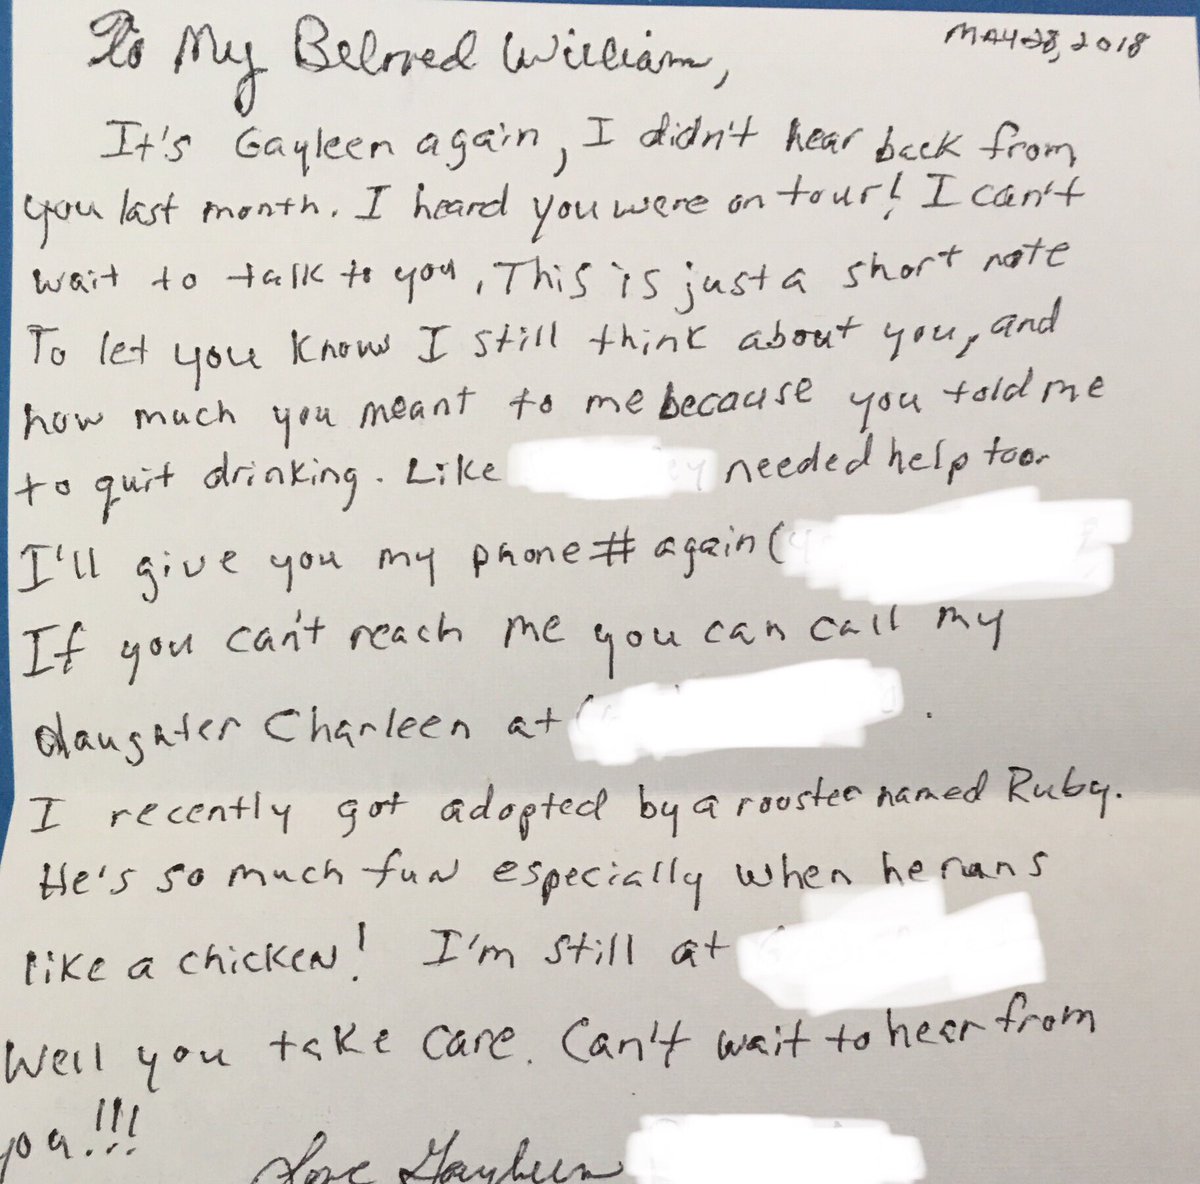 To My Beloved William,
MAY 28, 2018
It's Gayleen again, I didn't hear back from
you last month. I heard you were on tour! I can't
wait to talk to you. This is just a short note
To let you know I still think about you, and
how much you meant to me because you told me
to quit drinking. Like needed help too.
I'll give you my phone # again (
If you can't reach me you can call my
daughter Charleen at (
I recently got adopted by a rooster named Ruby.
He's so much fun especially when he runs
like a chicken! I'm still at
Well you take care. Can't wait to hear from
you!!!
Love Gayleen